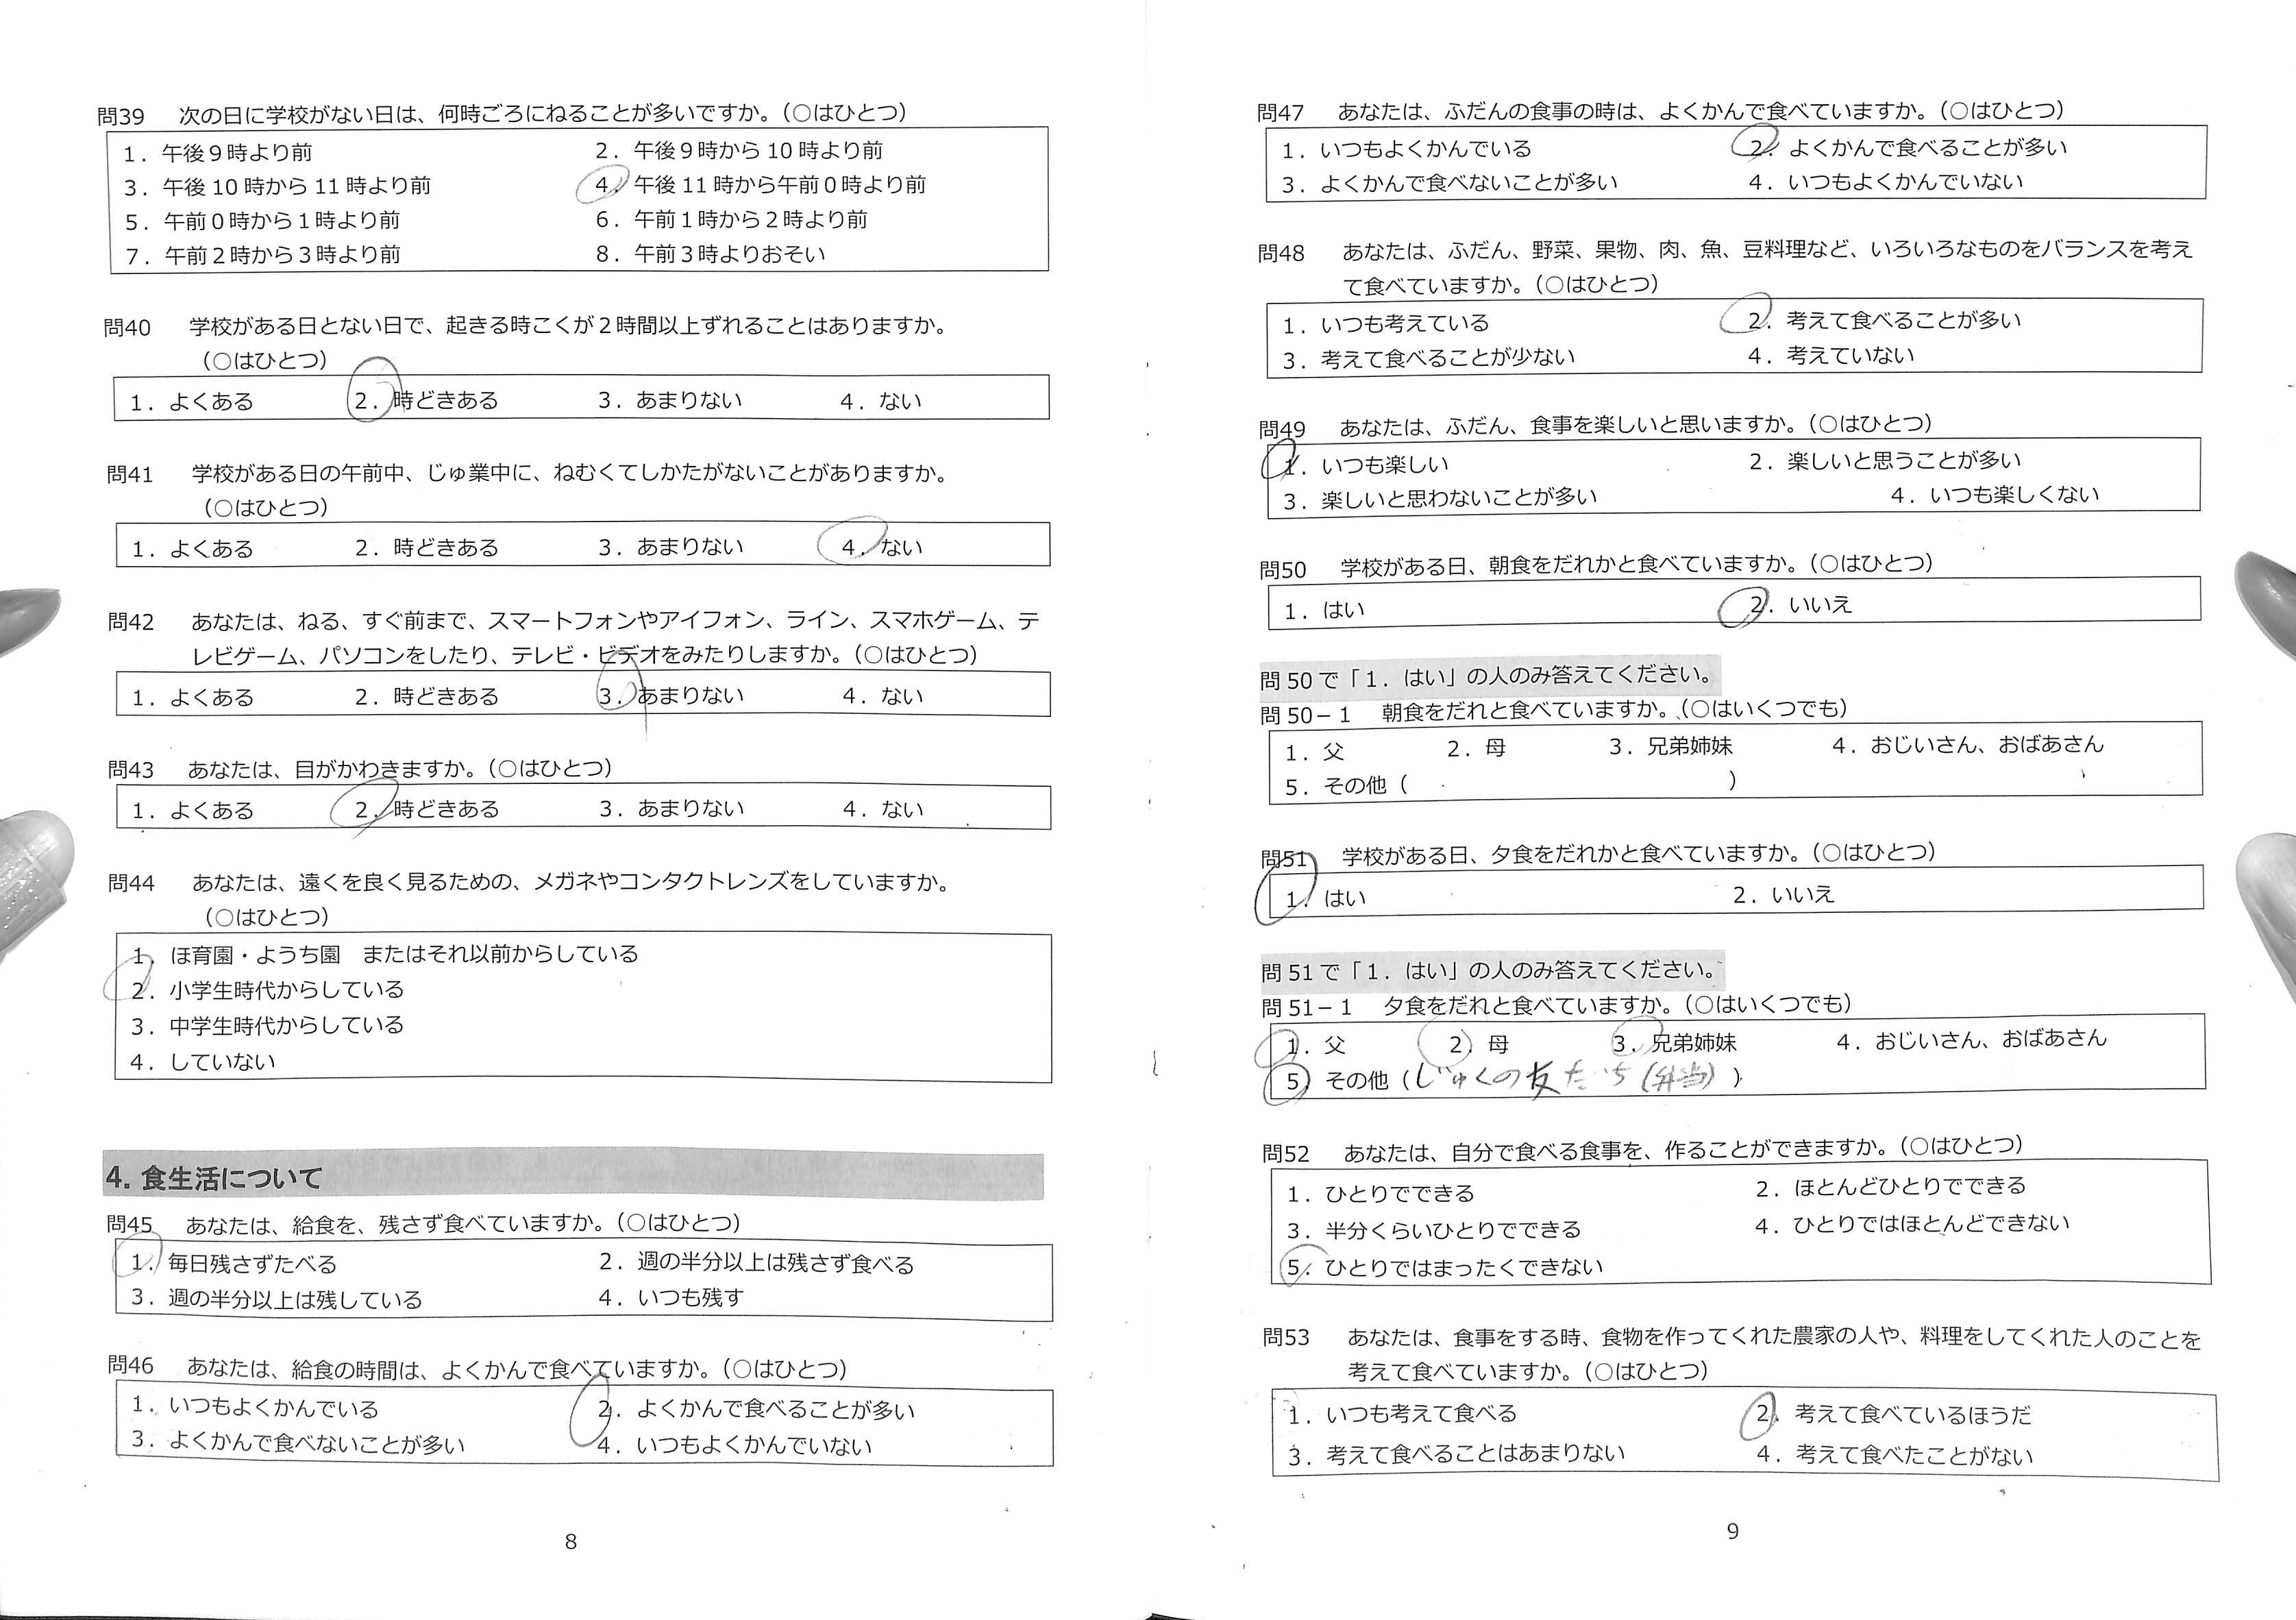 問39 次の日に学校がない日は、何時ごろにねることが多いですか。（○はひとつ）
1．午後９時より前 2．午後９時から 10 時より前
3．午後 10 時から 11 時より前 4．午後 11 時から午前０時より前
5．午前０時から１時より前 6．午前１時から２時より前
7．午前２時から３時より前 8．午前３時よりおそい
問40 学校がある日とない日で、起きる時こくが２時間以上ずれることはありますか。
（○はひとつ）
1．よくある 2．時どきある 3．あまりない 4．ない
問41 学校がある日の午前中、じゅ業中に、ねむくてしかたがないことがありますか。
（○はひとつ）
1．よくある 2．時どきある 3．あまりない 4．ない
問42 あなたは、ねる、すぐ前まで、スマートフォンやアイフォン、ライン、スマホゲーム、テ
レビゲーム、パソコンをしたり、テレビ・ビデオをみたりしますか。（○はひとつ）
1．よくある 2．時どきある 3．あまりない 4．ない
問43 あなたは、目がかわきますか。（○はひとつ）
1．よくある 2．時どきある 3．あまりない 4．ない
問44 あなたは、遠くを良く見るための、メガネやコンタクトレンズをしていますか。
（○はひとつ）
1．ほ育園・ようち園　またはそれ以前からしている
2．小学生時代からしている
3．中学生時代からしている
4．していない
4. 食生活について
問45 あなたは、給食を、残さず食べていますか。（○はひとつ）
1．毎日残さずたべる 2．週の半分以上は残さず食べる
3．週の半分以上は残している 4．いつも残す
問46 あなたは、給食の時間は、よくかんで食べていますか。（○はひとつ）
1．いつもよくかんでいる 2．よくかんで食べることが多い
3．よくかんで食べないことが多い 4．いつもよくかんでいない
8
問47 あなたは、ふだんの食事の時は、よくかんで食べていますか。（○はひとつ）
1．いつもよくかんでいる 2．よくかんで食べることが多い
3．よくかんで食べないことが多い 4．いつもよくかんでいない
問48 あなたは、ふだん、野菜、果物、肉、魚、豆料理など、いろいろなものをバランスを考え
て食べていますか。（○はひとつ）
1．いつも考えている 2．考えて食べることが多い
3．考えて食べることが少ない 4．考えていない
問49 あなたは、ふだん、食事を楽しいと思いますか。（○はひとつ）
1．いつも楽しい 2．楽しいと思うことが多い
3．楽しいと思わないことが多い 4．いつも楽しくない
問50 学校がある日、朝食をだれかと食べていますか。（○はひとつ）
1．はい 2．いいえ
問 50 で「１．はい」の人のみ答えてください。
問 50－１ 朝食をだれと食べていますか。（○はいくつでも）
1．父 2．母 3．兄弟姉妹 4．おじいさん、おばあさん
5．その他（ ）
問51 学校がある日、夕食をだれかと食べていますか。（○はひとつ）
1．はい 2．いいえ
問 51 で「１．はい」の人のみ答えてください。
問 51－１ 夕食をだれと食べていますか。（○はいくつでも）
1．父 2．母 3．兄弟姉妹 4．おじいさん、おばあさん
5．その他（じゅくの友だち（弁当））
問52 あなたは、自分で食べる食事を、作ることができますか。（○はひとつ）
1．ひとりでできる 2．ほとんどひとりでできる
3．半分くらいひとりでできる 4．ひとりではほとんどできない
5．ひとりではまったくできない
問53 あなたは、食事をする時、食物を作ってくれた農家の人や、料理をしてくれた人のことを
考えて食べていますか。（○はひとつ）
1．いつも考えて食べる 2．考えて食べているほうだ
3．考えて食べることはあまりない 4．考えて食べたことがない
9